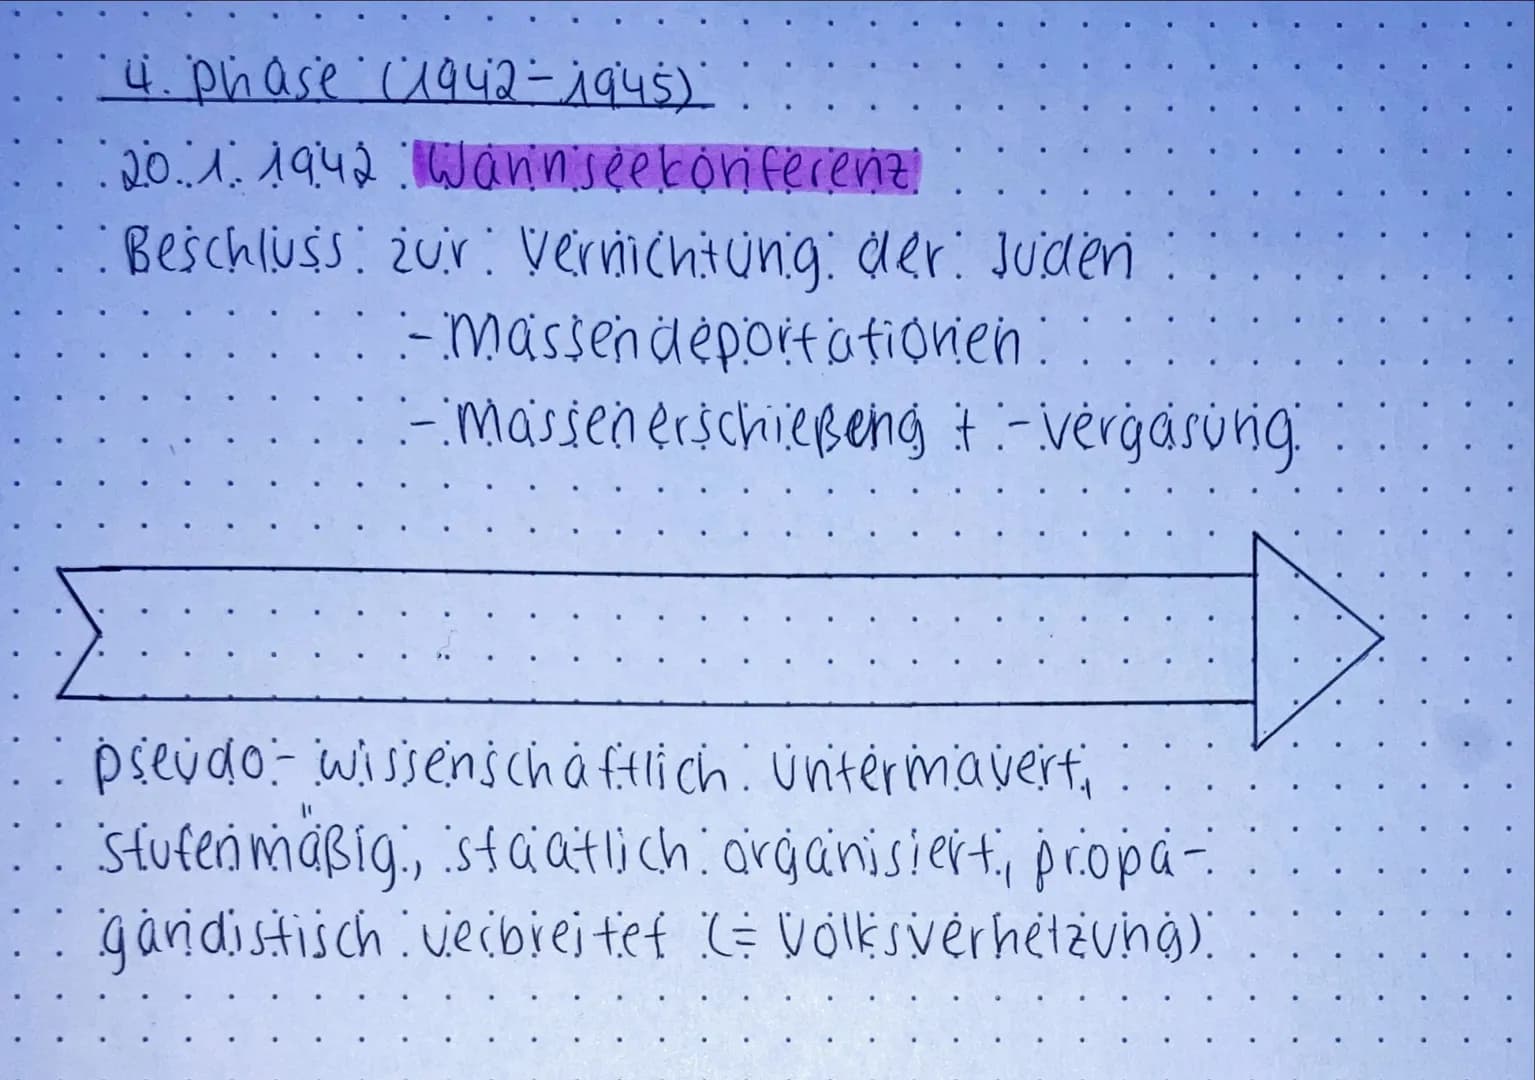 4. Phase (1942-1945)
20.1.1942 Wannseekonferenz
Beschluss zur Vernichtung der Juden
- Massendeportationen
- Massenerschießeng + -vergasung
pseudo-wissenschaftlich untermauert,
stufenmäßig, staatlich organisiert, propa-
gandistisch verbreitet (= Volksverhetzung)